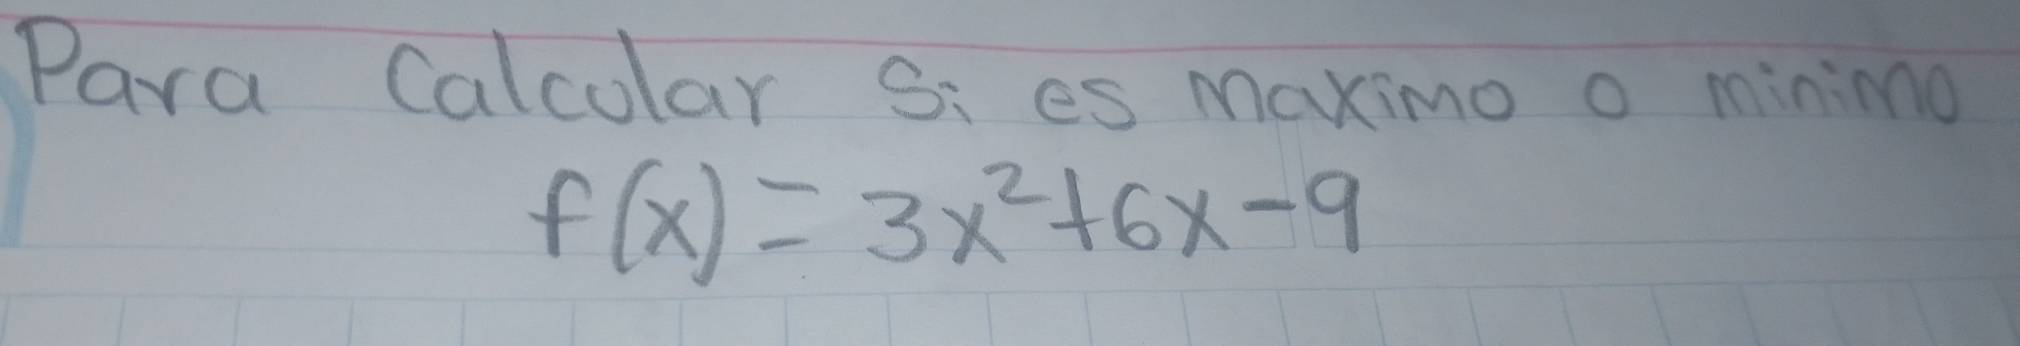 Para Calcular Si es maximo o minimo
f(x) = 3x²+6x-9